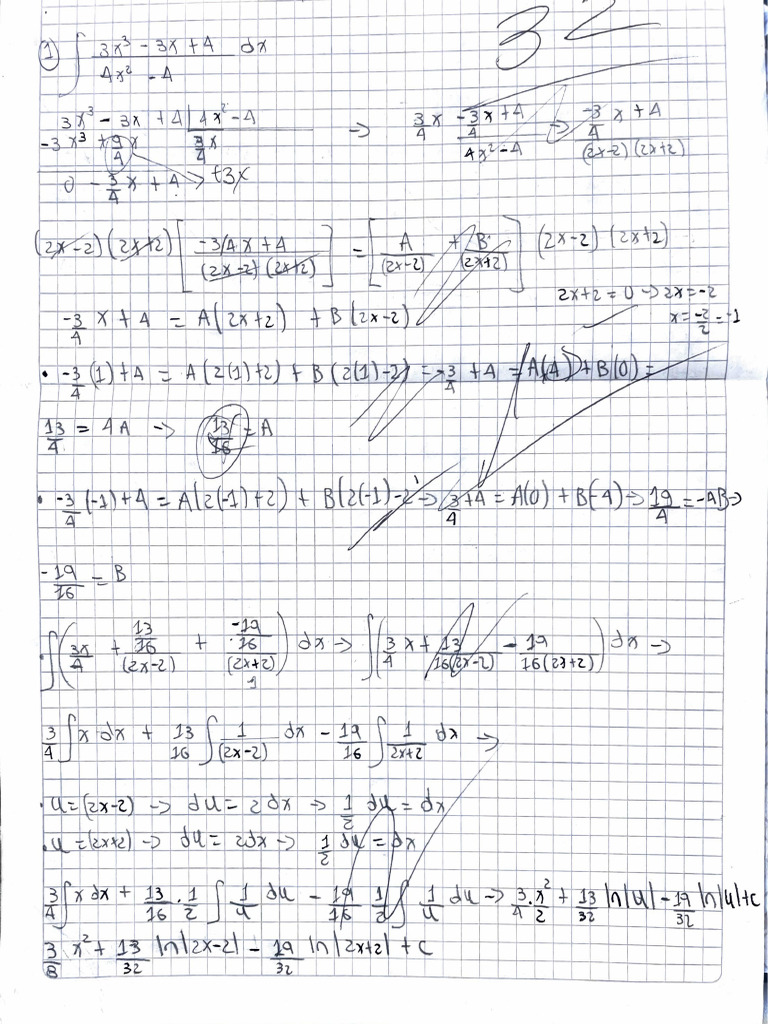 32
1) ∫ (3x³ - 3x + 4)/(4x² - 4) dx
3x³ - 3x + 4 | 4x² - 4
-3x³ + 9/4 x | 3/4 x
0 - 3/4 x + 4 → +3x
→ 3/4 x (-3/4 x + 4)/(4x² - 4) ⇒ (-3/4 x + 4)/((2x-2)(2x+2))
(2x-2)(2x+2) [(-3/4 x + 4)/((2x-2)(2x+2))] = [A/(2x-2) + B/(2x+2)] (2x-2)(2x+2)
2x+2 = 0 → 2x = -2
x = -2/2 = -1
-3/4 x + 4 = A(2x+2) + B(2x-2)
• -3/4 (1) + 4 = A(2(1)+2) + B(2(1)-2) = -3/4 + 4 = A(4) + B(0) =
13/4 = 4A → 13/16 = A
• -3/4 (-1) + 4 = A(2(-1)+2) + B(2(-1)-2) → 3/4 + 4 = A(0) + B(-4) → 19/4 = -4B →
-19/16 = B
∫ (3x/4 + (13/16)/(2x-2) + (-19/16)/(2x+2)) dx → ∫ (3/4 x + 13/(16(2x-2)) - 19/(16(2x+2))) dx →
3/4 ∫ x dx + 13/16 ∫ 1/(2x-2) dx - 19/16 ∫ 1/(2x+2) dx →
• u = (2x-2) → du = 2dx → 1/2 du = dx
• u = (2x+2) → du = 2dx → 1/2 du = dx
3/4 ∫ x dx + 13/16 · 1/2 ∫ 1/u du - 19/16 · 1/2 ∫ 1/u du → 3/4 · x²/2 + 13/32 ln|u| - 19/32 ln|u| + c
3/8 x² + 13/32 ln|2x-2| - 19/32 ln|2x+2| + c